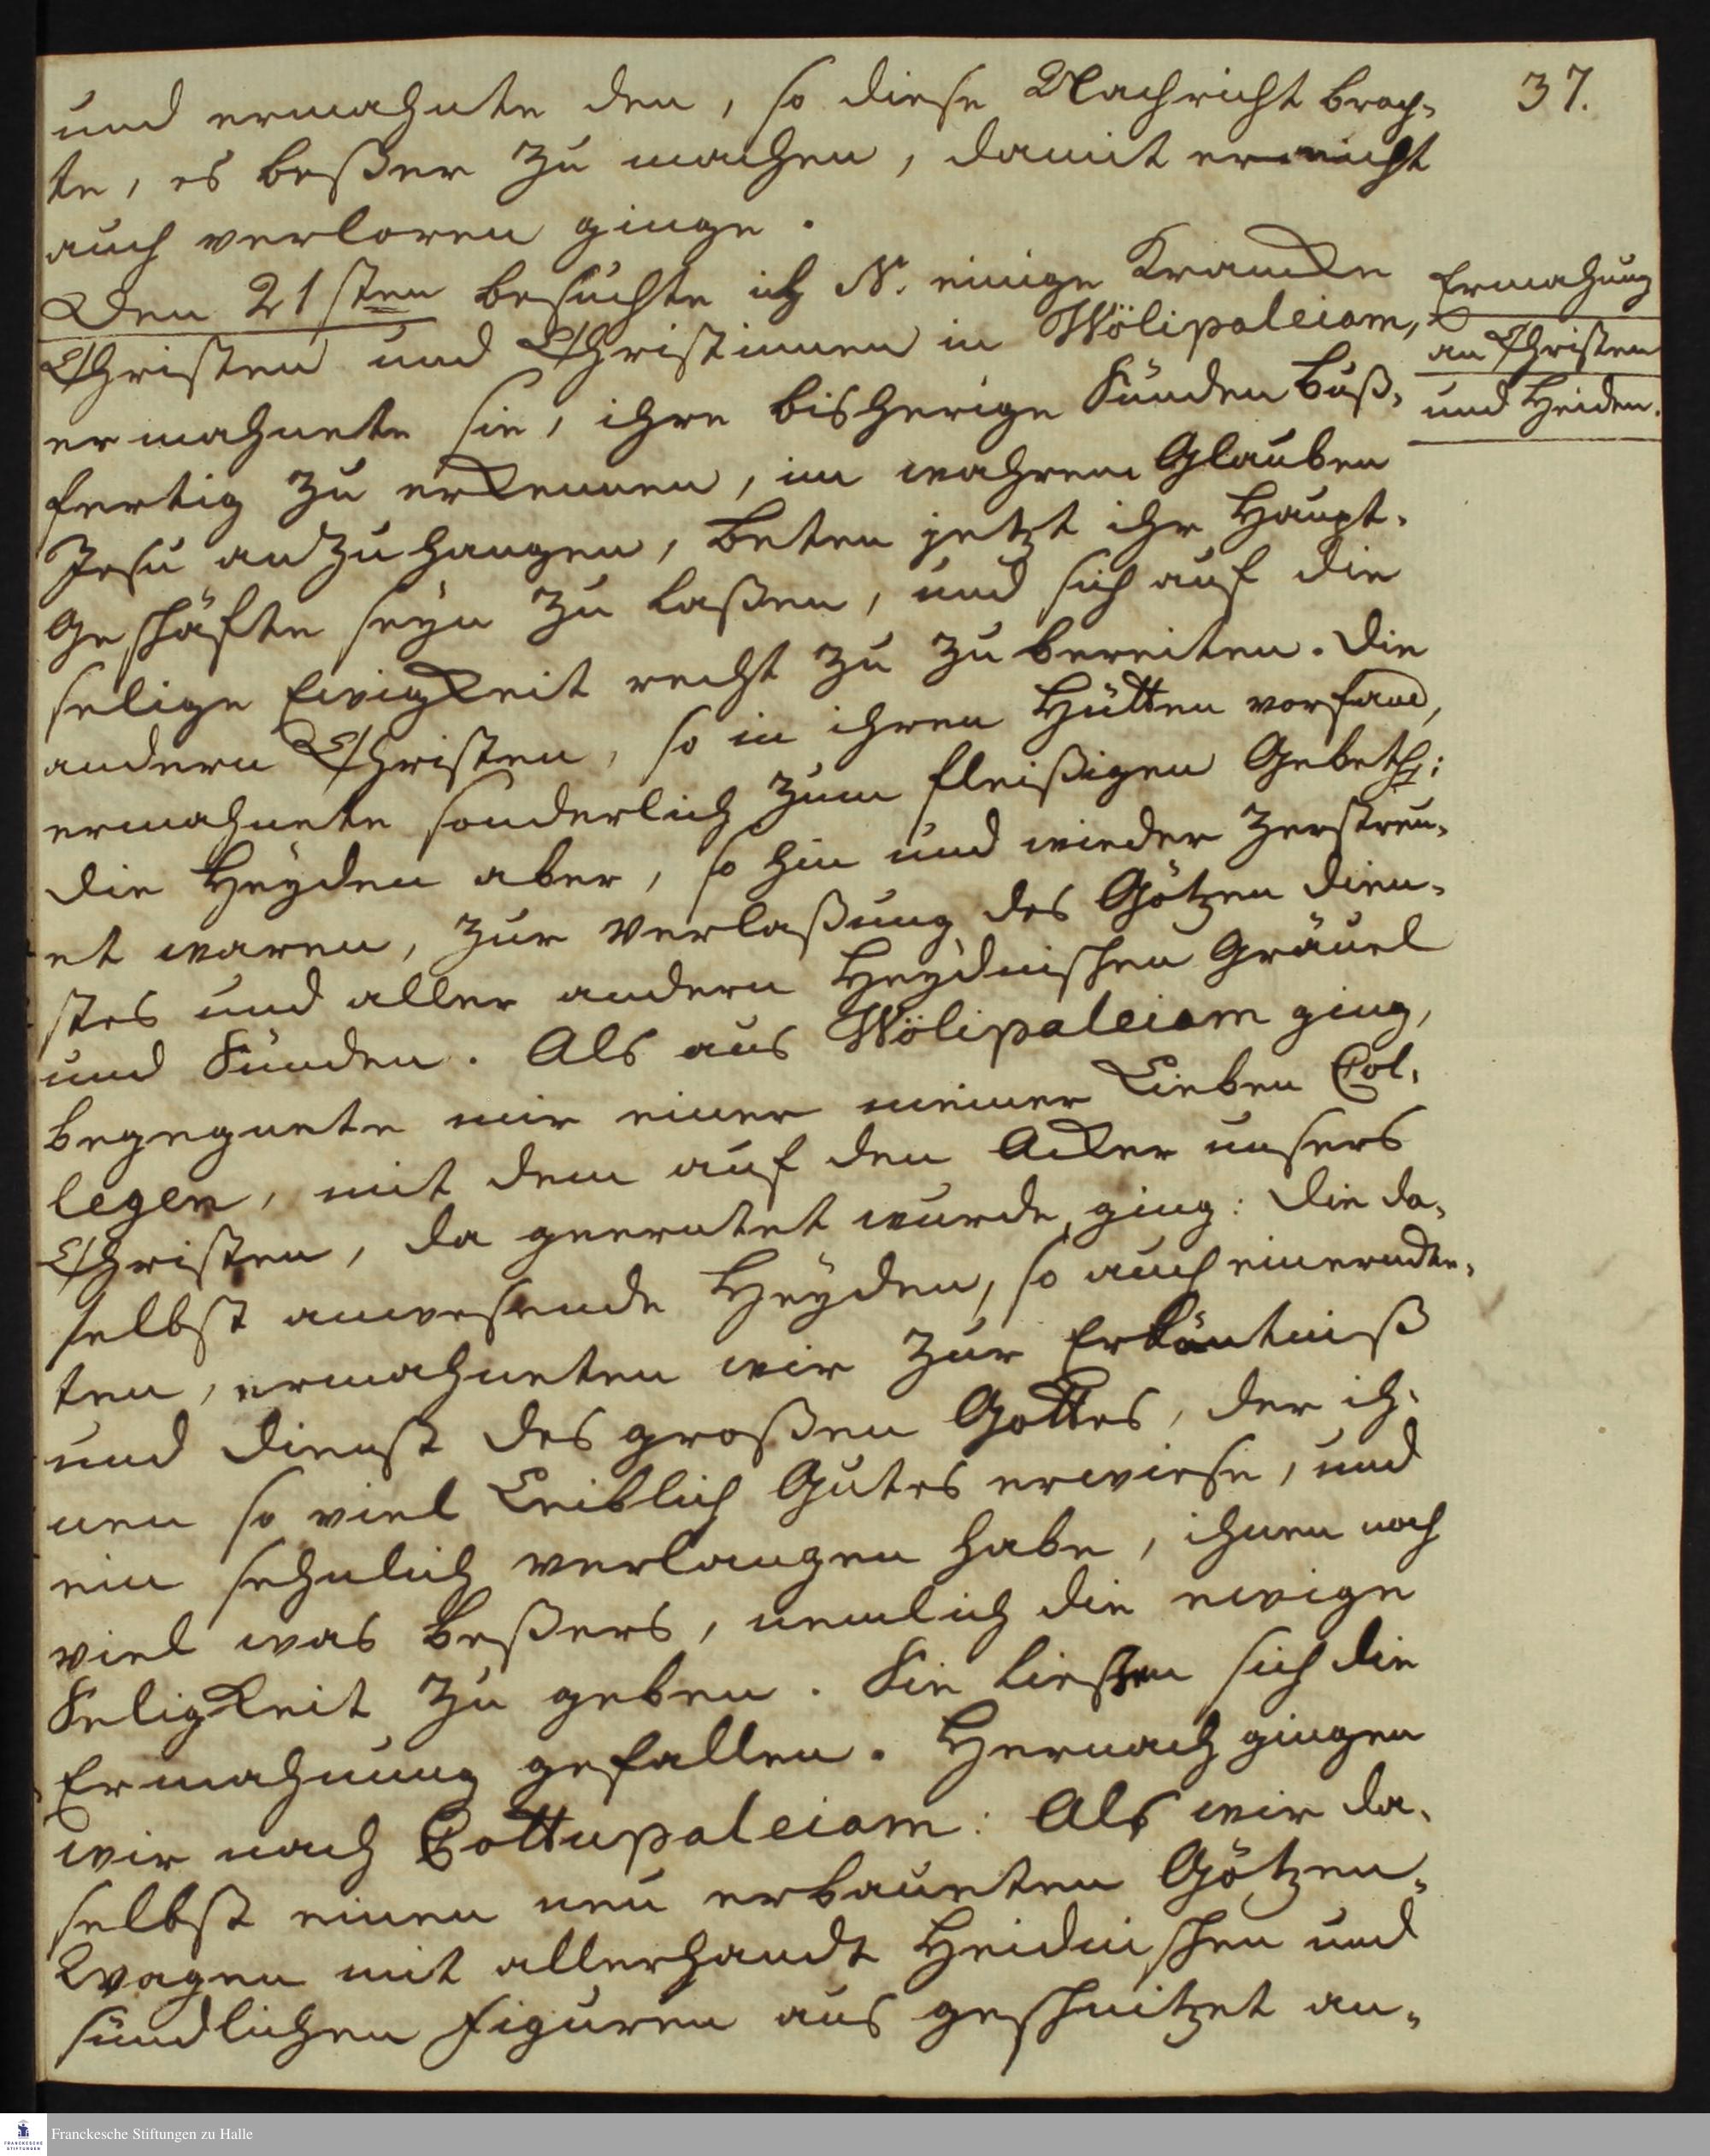 37.
und ermahnte den, so diese Nachricht brach-
te, es beßer zu machen, damit er nicht
auch verloren ginge.
Den 21sten besuchte ich N. einige Krancke
Christen und Christinnen in Wölipaleiam,
ermahnete sie, ihre bisherige Sünden buß-
fertig zu erkennen, im wahren Glauben
Jesu anzuhangen, beten jetzt ihr Haupt-
Geschäfte seyn zu laßen, und sich auf die
selige Ewigkeit recht zu zu bereiten. Die
andern Christen, so in ihren Hütten vorfand,
ermahnete sonderlich zum fleißigen Gebeth;
die Heyden aber, so hin und wieder zerstreu-
et waren, zur Verlaßung des Götzen dien-
stes und aller andern Heydnischen Gräuel
und Sünden. Als aus Wölipaleiam ging,
begegnete mir einer meiner Lieben Col-
legen, mit dem auf den Acker unsers
Christen, da geerntet wurde, ging: Die da-
selbst anwesende Heyden, so auch einerndte-
ten, ermahneten wir zur Erkäntniß
und Dienst des großen Gottes, der ih-
nen so viel Leiblich Gutes erwiese, und
ein sehnlich Verlangen habe, ihnen noch
viel was beßers, nemlich die ewige
Seligkeit zu geben. Sie ließen sich die
Ermahnung gefallen. Hernach gingen
wir nach Cottupaleiam: Als wir da-
selbst einen neu erbaueten Götzen-
Wagen mit allerhandt Heidnischen und
sündlichen Figuren aus geschnitzet an-
Ermahung
an Christen
und Heiden.
Franckesche Stiftungen zu Halle